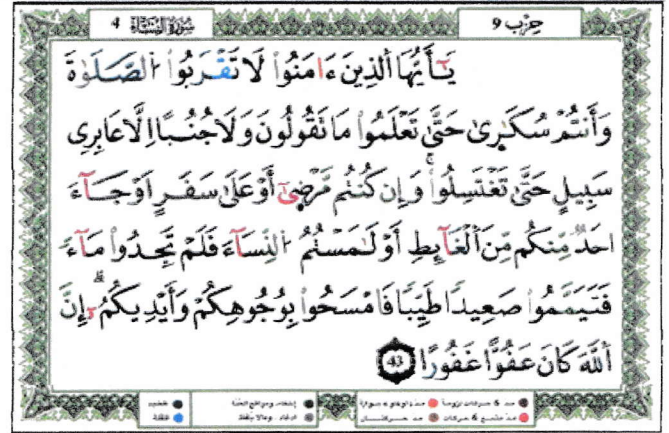 حِزْب 9
سُورَةُ النِّسَاءِ 4
يَـٰٓأَيُّهَا ٱلذِينَ ءَامَنُواْ لَا تَقْرَبُواْ ٱلصَّلَوٰةَ
وَأَنتُمْ سُكَـٰرٜىٰ حَتَّىٰ تَعْلَمُواْ مَا تَقُولُونَ وَلَا جُنُبًا اِلَّا عَابِرِى
سَبِيلٍ حَتَّىٰ تَغْتَسِلُواْۖ وَإِن كُنتُم مَّرْضٜىٰٓ أَوْ عَلَىٰ سَفَرٍ اَوْ جَآءَ
احَدٌ مِّنكُم مِّنَ ٱلْغَآئِطِ أَوْ لَـٰمَسْتُمُ ٱلنِّسَآءَ فَلَمْ تَجِدُواْ مَآءً
فَتَيَمَّمُواْ صَعِيدًا طَيِّبًا فَامْسَحُواْ بِوُجُوهِكُمْ وَأَيْدِيكُمُۥٓۖ إِنَّ
ٱللَّهَ كَانَ عَفُوًّا غَفُورًا 43